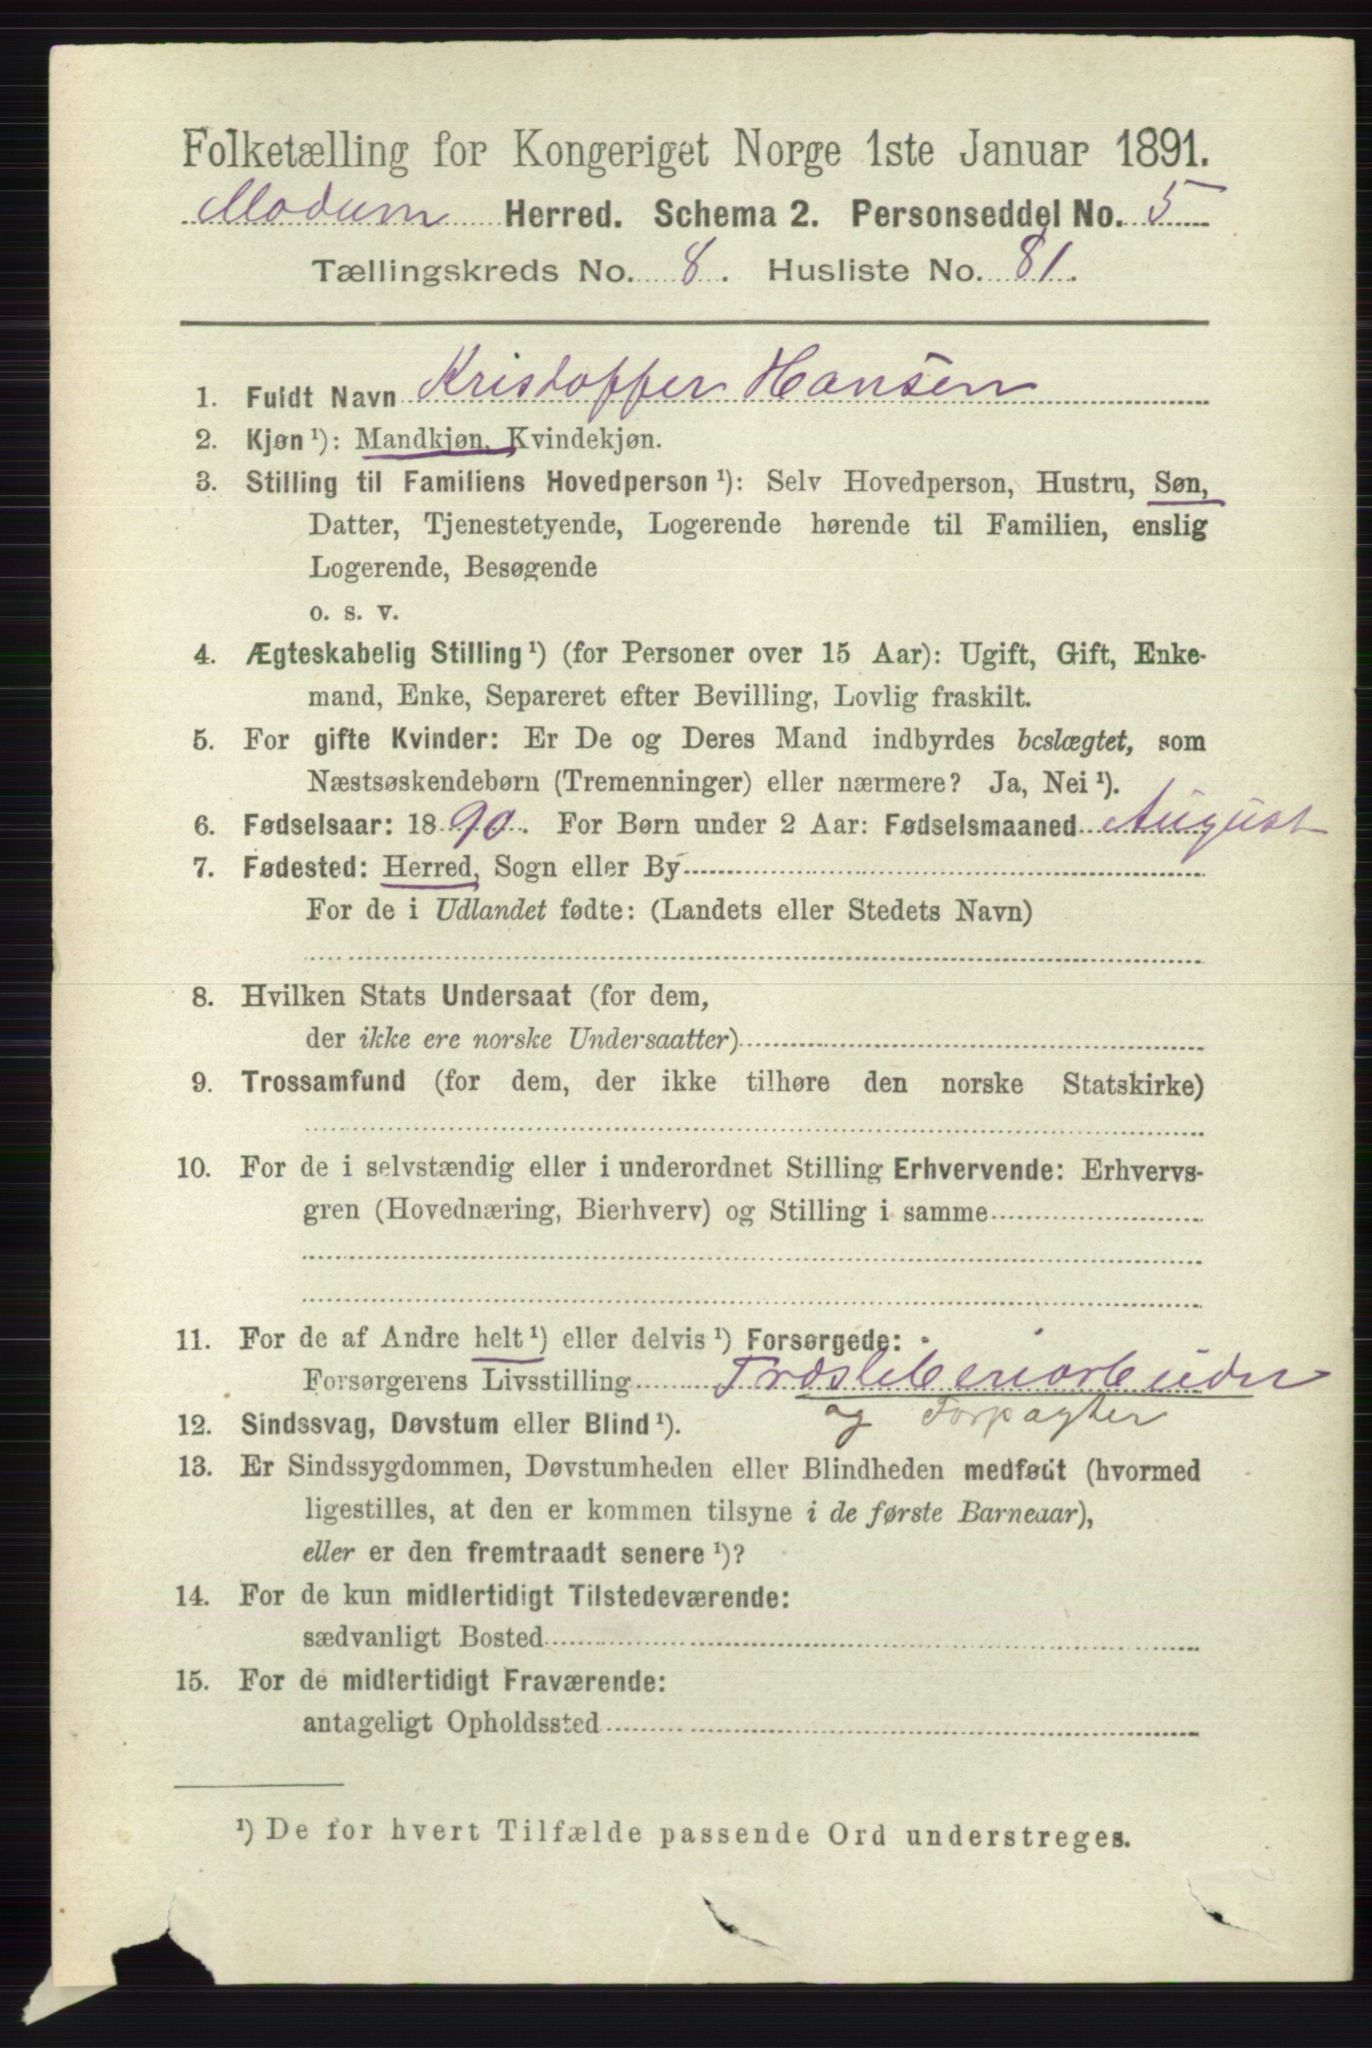 Folketælling for Kongeriget Norge 1ste Januar 1891.
Modum Herred. Schema 2. Personseddel No. 5
Tællingskreds No. 8. Husliste No. 81.
1. Fuldt Navn Kristoffer Hansen
2. Kjøn ¹): Mandkjøn, Kvindekjøn.
3. Stilling til Familiens Hovedperson ¹): Selv Hovedperson, Hustru, Søn,
Datter, Tjenestetyende, Logerende hørende til Familien, enslig
Logerende, Besøgende
o. s. v.
4. Ægteskabelig Stilling ¹) (for Personer over 15 Aar): Ugift, Gift, Enke-
mand, Enke, Separeret efter Bevilling, Lovlig fraskilt.
5. For gifte Kvinder: Er De og Deres Mand indbyrdes beslægtet, som
Næstsøskendebørn (Tremenninger) eller nærmere? Ja, Nei ¹).
6. Fødselsaar: 1890. For Børn under 2 Aar: Fødselsmaaned August
7. Fødested: Herred, Sogn eller By
For de i Udlandet fødte: (Landets eller Stedets Navn)
8. Hvilken Stats Undersaat (for dem,
der ikke ere norske Undersaatter)
9. Trossamfund (for dem, der ikke tilhøre den norske Statskirke)
10. For de i selvstændig eller i underordnet Stilling Erhvervende: Erhvervs-
gren (Hovednæring, Bierhverv) og Stilling i samme
11. For de af Andre helt ¹) eller delvis ¹) Forsørgede:
Forsørgerens Livsstilling Træsliberiarbeider
og Forpagter
12. Sindssvag, Døvstum eller Blind ¹).
13. Er Sindssygdommen, Døvstumheden eller Blindheden medfødt (hvormed
ligestilles, at den er kommen tilsyne i de første Barneaar),
eller er den fremtraadt senere ¹)?
14. For de kun midlertidigt Tilstedeværende:
sædvanligt Bosted
15. For de midlertidigt Fraværende:
antageligt Opholdssted
¹) De for hvert Tilfælde passende Ord understreges.